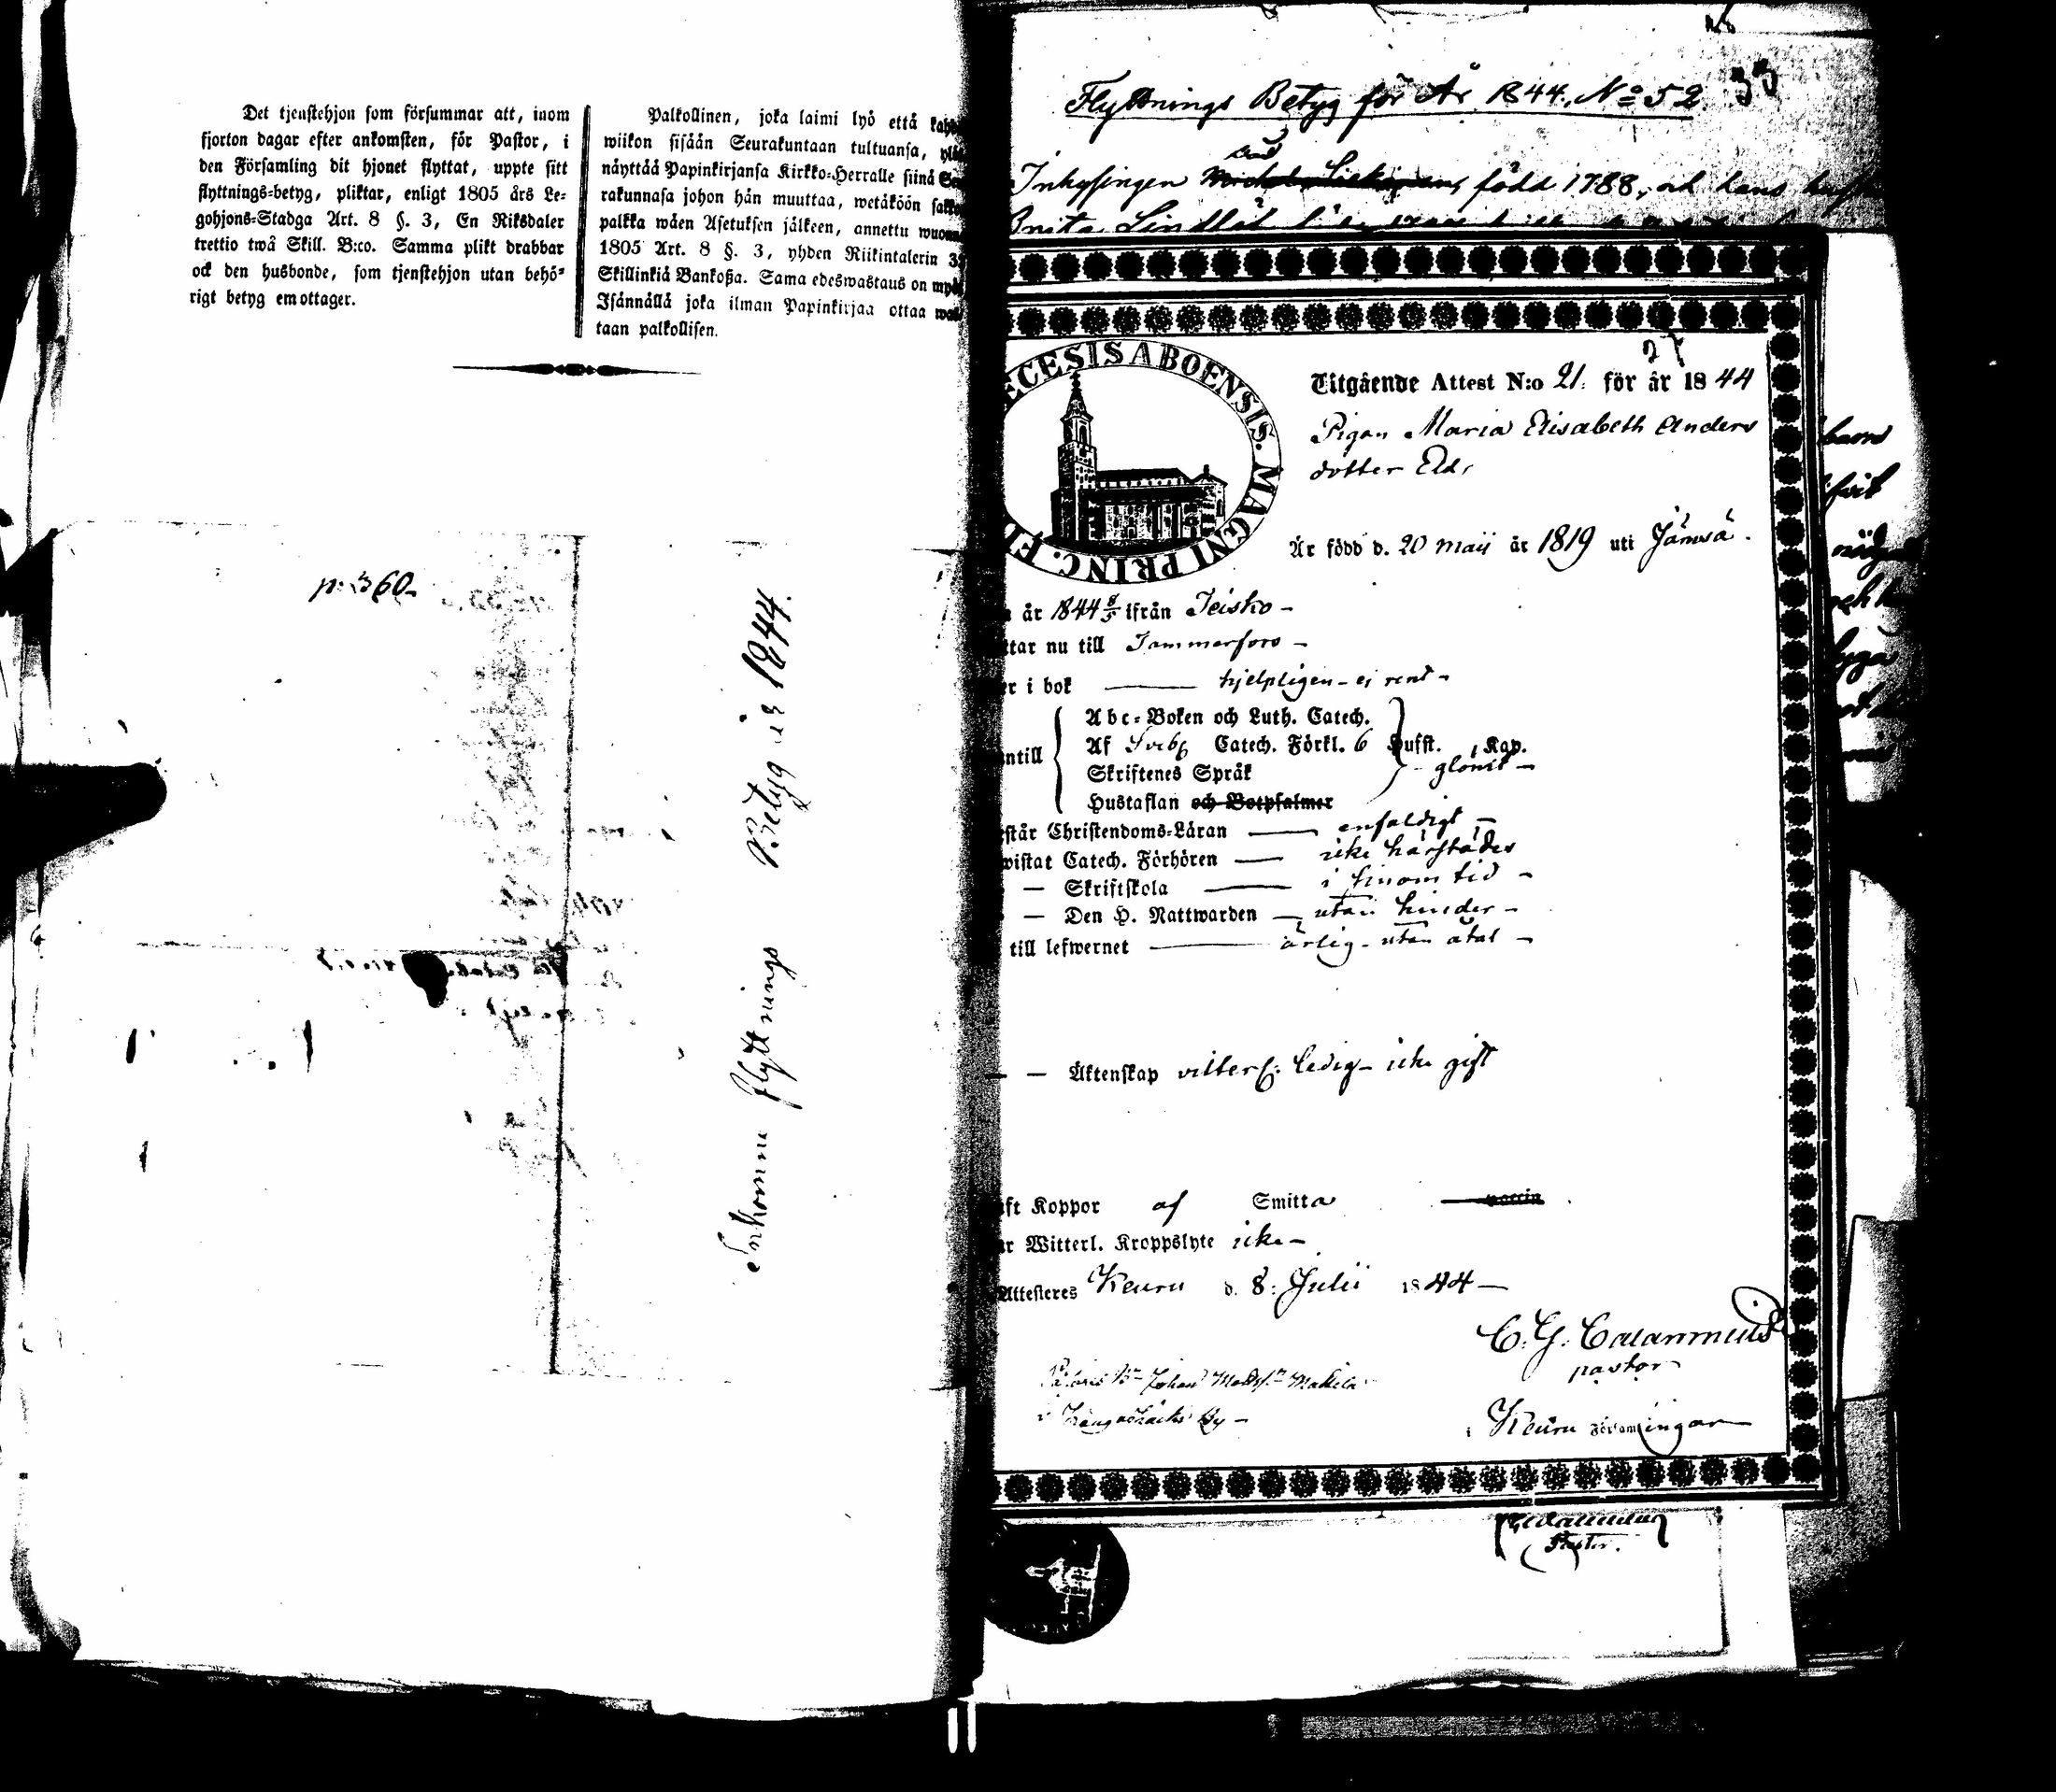 Det tjenstehjon som försummar att, inom
fjorton dagar efter ankomsten, för Pastor, i
den Församling dit hjonet flyttat, uppte sitt
flyttnings-betyg, pliktar, enligt 1805 års Le-
gohjons-Stadga Art. 8 §. 3, En Riksdaler
trettio twå Skill. B:co. Samma plikt drabbar
ock den husbonde, som tjenstehjon utan behö-
rigt betyg emottager.
Palkollinen, joka laimi lyö että
wiikon sisään Seurakuntaan tultuansa,
näyttää Papinkirjansa Kirkko-Herralle siinä
rakunnasa johon hän muuttaa, wetäköön
palkka wäen Asetuksen jälkeen, annettu
1805 Art. 8 §. 3, yhden Riikintalerin
Skillinkiä Bankoßa. Sama edeswastaus on
Isännällä joka ilman Papinkirjaa ottaa
taan palkollisen.
p: 360
Inkomne Flyttnings Betyg år 1844.
33
Flyttnings Betyg för År 1844. No 52
Inhysingen född 1788, och hans
Brita
ECESIS ABOENSIS. MAGNI PRINC. FI
27
Utgående Attest N:o 21. för år 1844
Pigan Maria Elisabeth Anders
dotter
Är född d. 20 Maii år 1819 uti Jämsä.
år 1844 8/5 ifrån Teisko –
ttar nu till Tammerfors –
er i bok — hjelpligen – ej rent –
Abc-Boken och Luth. Catech.
Af Sveb. Catech. Förkl. 6 Hufst. Kap.
ntill
Skriftenes Språk glömt –
Hustaflan och Botpsalmer
står Christendoms-Läran — enfaldigt –
wistat Catech. Förhören — icke härstädes
— Skriftskola — i sinom tid –
— Den H. Nattwarden — utan hinder –
till lefwernet — ärlig – utan åtal –
— Äktenskap ledig – icke gift
ft Koppor af Smitta vaccin
r Witterl. Kroppslyte icke –
Attesteres Keuru d. 8. Julii 1844 –
C. G. Calamnius
pastor
i Keuru Församlingar
Johan
By –
Pastor.